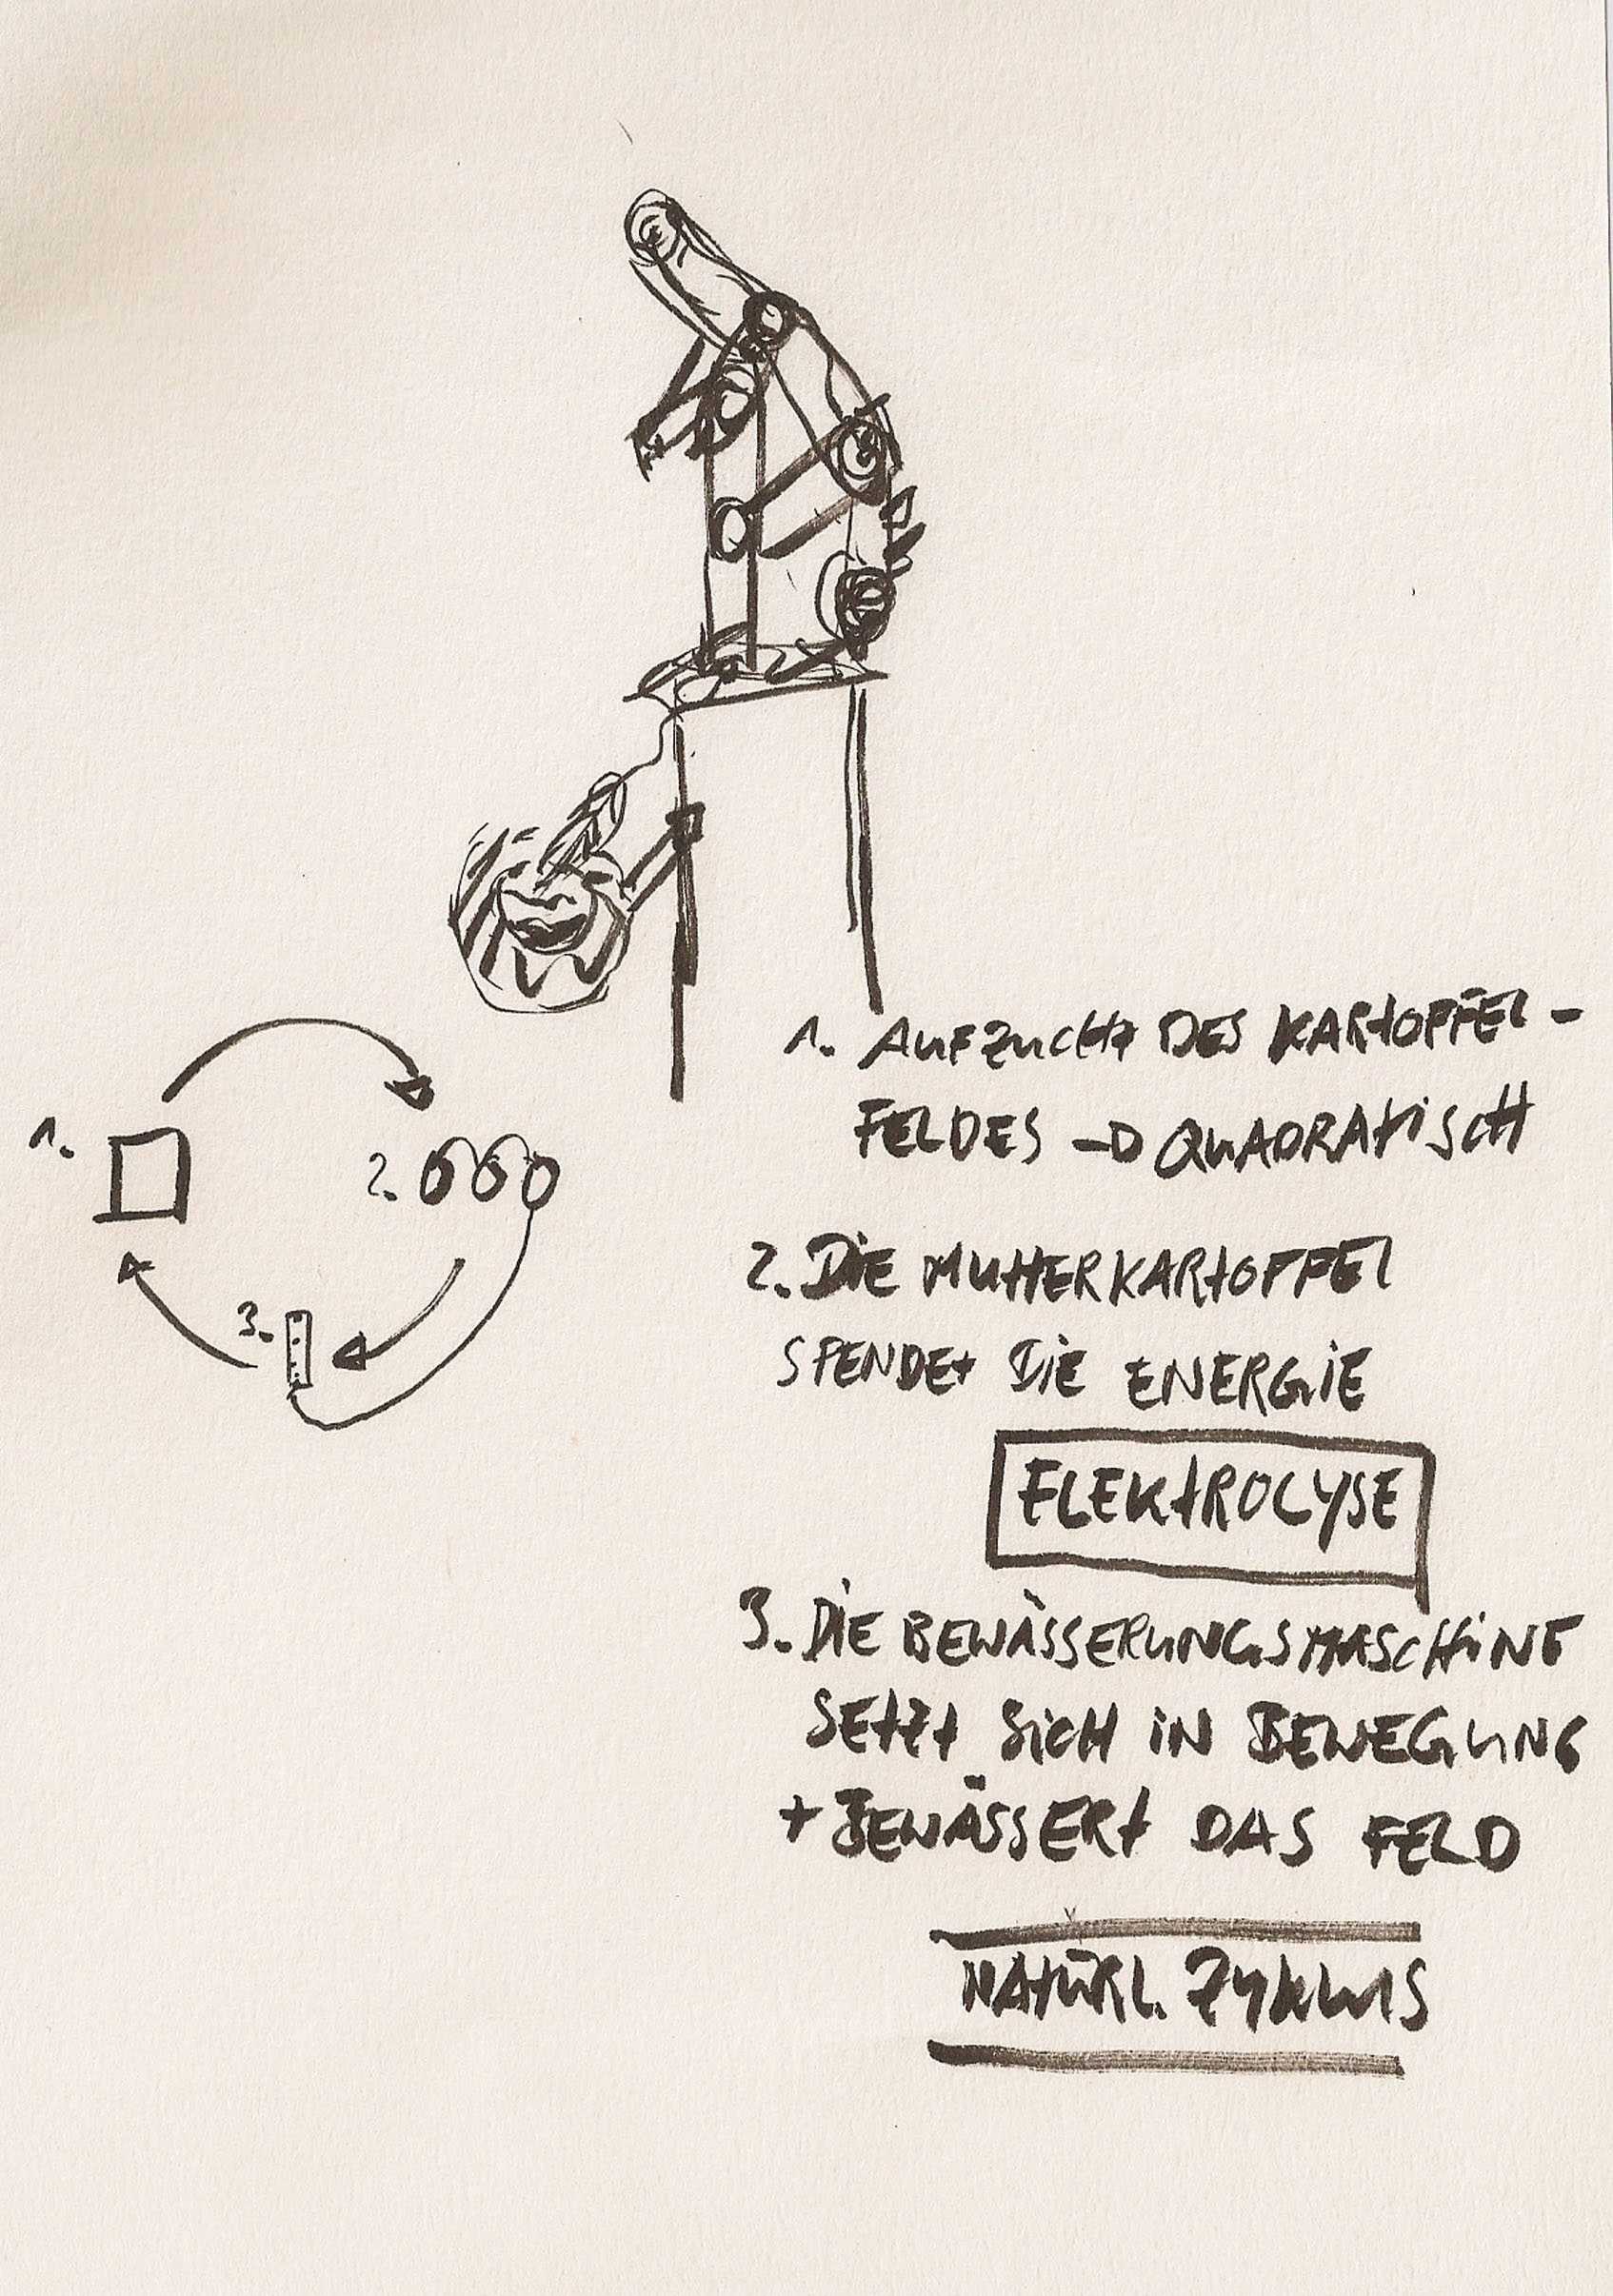 1. AUFZUCHT DES KARTOFFEL-
FELDES → QUADRATISCH
1.
2.
2. DIE MUTTERKARTOFFEL
3.
SPENDET DIE ENERGIE
ELEKTROLYSE
3. DIE BEWÄSSERUNGSMASCHINE
SETZT SICH IN BEWEGUNG
+ BEWÄSSERT DAS FELD
NATÜRL. ZYKLUS